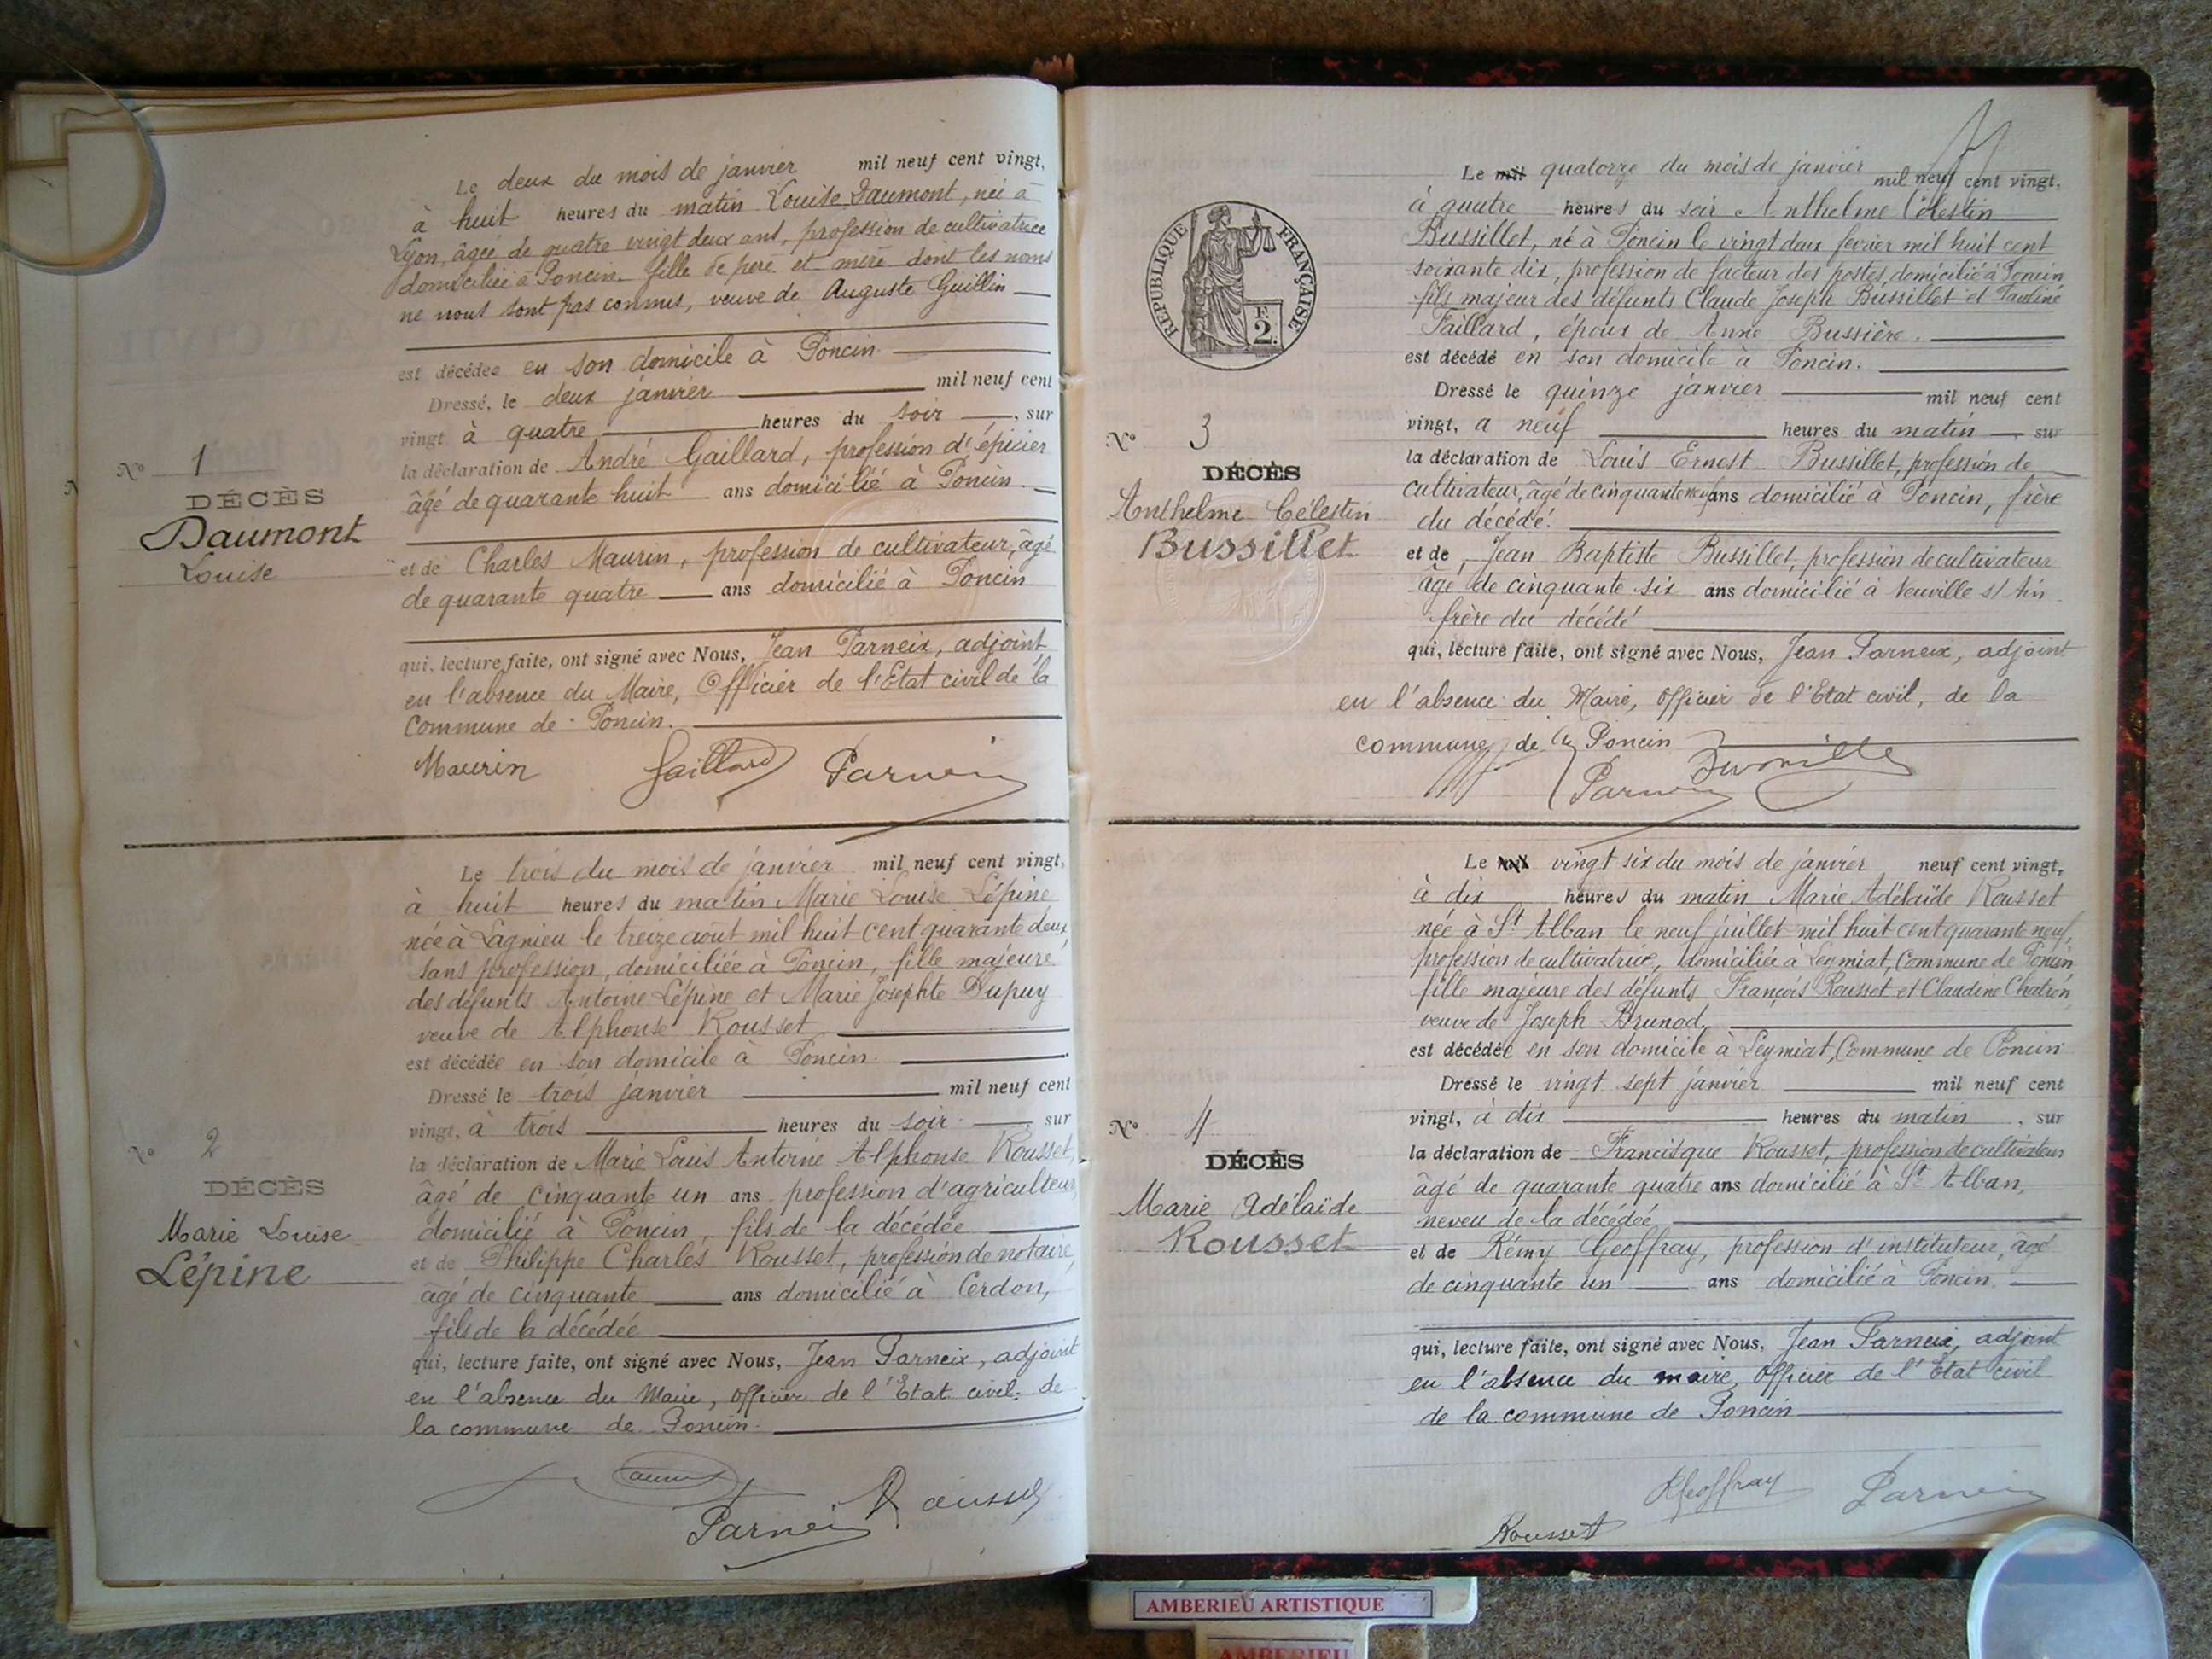 Le deux du mois de janvier mil neuf cent vingt,
à huit heures du matin Louise Daumont, née à
Lyon, âgée de quatre vingt deux ans, profession de cultivatrice
domiciliée à Poncin, fille de père et mère dont les noms
ne nous sont pas connus, veuve de Auguste Guillin
est décédée en son domicile à Poncin.
Dressé, le deux janvier mil neuf cent
vingt à quatre heures du soir, sur
la déclaration de André Gaillard, profession d'épicier
âgé de quarante huit ans domicilié à Poncin.
et de Charles Maurin, profession de cultivateur, âgé
de quarante quatre ans domicilié à Poncin
qui, lecture faite, ont signé avec Nous, Jean Parneix, adjoint
en l'absence du Maire, Officier de l'Etat civil de la
Commune de Poncin.
Maurin Gaillard Parneix
N° 1
DÉCÈS
Daumont
Louise
Le trois du mois de janvier mil neuf cent vingt,
à huit heures du matin Marie Louise Lépine
née à Lagnieu le treize août mil huit cent quarante deux,
sans profession, domiciliée à Poncin, fille majeure
des défunts Antoine Lépine et Marie Josephte Dupuy
veuve de Alphonse Rousset
est décédée en son domicile à Poncin.
Dressé le trois janvier mil neuf cent
vingt, à trois heures du soir, sur
la déclaration de Marie Louis Antoine Alphonse Rousset,
âgé de cinquante un ans profession d'agriculteur,
domicilié à Poncin, fils de la décédée
et de Philippe Charles Rousset, profession de notaire,
âgé de cinquante ans domicilié à Cerdon,
fils de la décédée
qui, lecture faite, ont signé avec Nous, Jean Parneix, adjoint
en l'absence du Maire, officier de l'Etat civil, de
la commune de Poncin.
Parneix Rousset
N° 2
DÉCÈS
Marie Louise
Lépine
RÉPUBLIQUE FRANÇAISE
F.
2.
Le mil quatorze du mois de janvier mil neuf cent vingt,
à quatre heures du soir Anthelme Célestin
Bussillet, né à Poncin le vingt deux février mil huit cent
soixante dix, profession de facteur des postes, domicilié à Poncin
fils majeur des défunts Claude Joseph Bussillet et Pauline
Faillard, époux de Anne Bussière.
est décédé en son domicile à Poncin.
Dressé le quinze janvier mil neuf cent
vingt, à neuf heures du matin, sur
la déclaration de Louis Ernest Bussillet, profession de
cultivateur, âgé de cinquante neuf ans domicilié à Poncin, frère
du décédé.
et de, Jean Baptiste Bussillet, profession de cultivateur
âgé de cinquante six ans domicilié à Neuville s/ Ain
frère du décédé
qui, lecture faite, ont signé avec Nous, Jean Parneix, adjoint
en l'absence du Maire, Officier de l'Etat civil, de la
commune de Poncin
Parneix
N° 3
DÉCÈS
Anthelme Célestin
Bussillet
Le vingt six du mois de janvier neuf cent vingt,
à dix heures du matin Marie Adélaïde Rousset
née à St Alban le neuf juillet mil huit cent quarante neuf,
profession de cultivatrice, domiciliée à Leymiat, Commune de Poncin
fille majeure des défunts François Rousset et Claudine Chatron
veuve de Joseph Brunod.
est décédée en son domicile à Leymiat, Commune de Poncin
Dressé le vingt sept janvier mil neuf cent
vingt, à dix heures du matin, sur
la déclaration de Francisque Rousset, profession de cultivateur
âgé de quarante quatre ans domicilié à St Alban,
neveu de la décédée
et de Rémy Geoffray, profession d'instituteur, âgé
de cinquante un ans domicilié à Poncin.
qui, lecture faite, ont signé avec Nous, Jean Parneix, adjoint
en l'absence du maire, Officier de l'Etat civil
de la commune de Poncin
RGeoffray Parneix
Rousset
N° 4
DÉCÈS
Marie Adélaïde
Rousset
AMBERIEU ARTISTIQUE
AMBERIEU